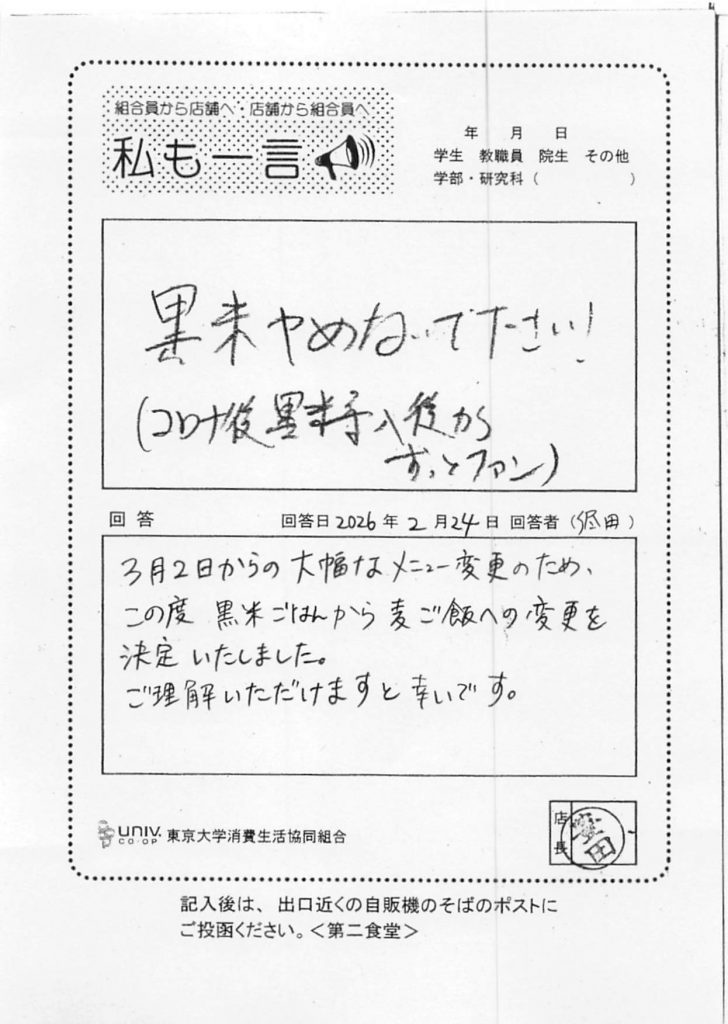 組合員から店舗へ・店舗から組合員へ
私も一言
年 月 日
学生 教職員 院生 その他
学部・研究科( )
黒米やめないで下さい!
(コロナ後黒米
後から
ずっとファン)
回答
回答日2026年2月24日 回答者( 田)
3月2日からの大幅なメニュー変更のため、
この度 黒米ごはんから麦ご飯への変更を
決定いたしました。
ご理解いただけますと幸いです。
UNIV. CO-OP 東京大学消費生活協同組合
店長
田
記入後は、出口近くの自販機のそばのポストに
ご投函ください。<第二食堂>